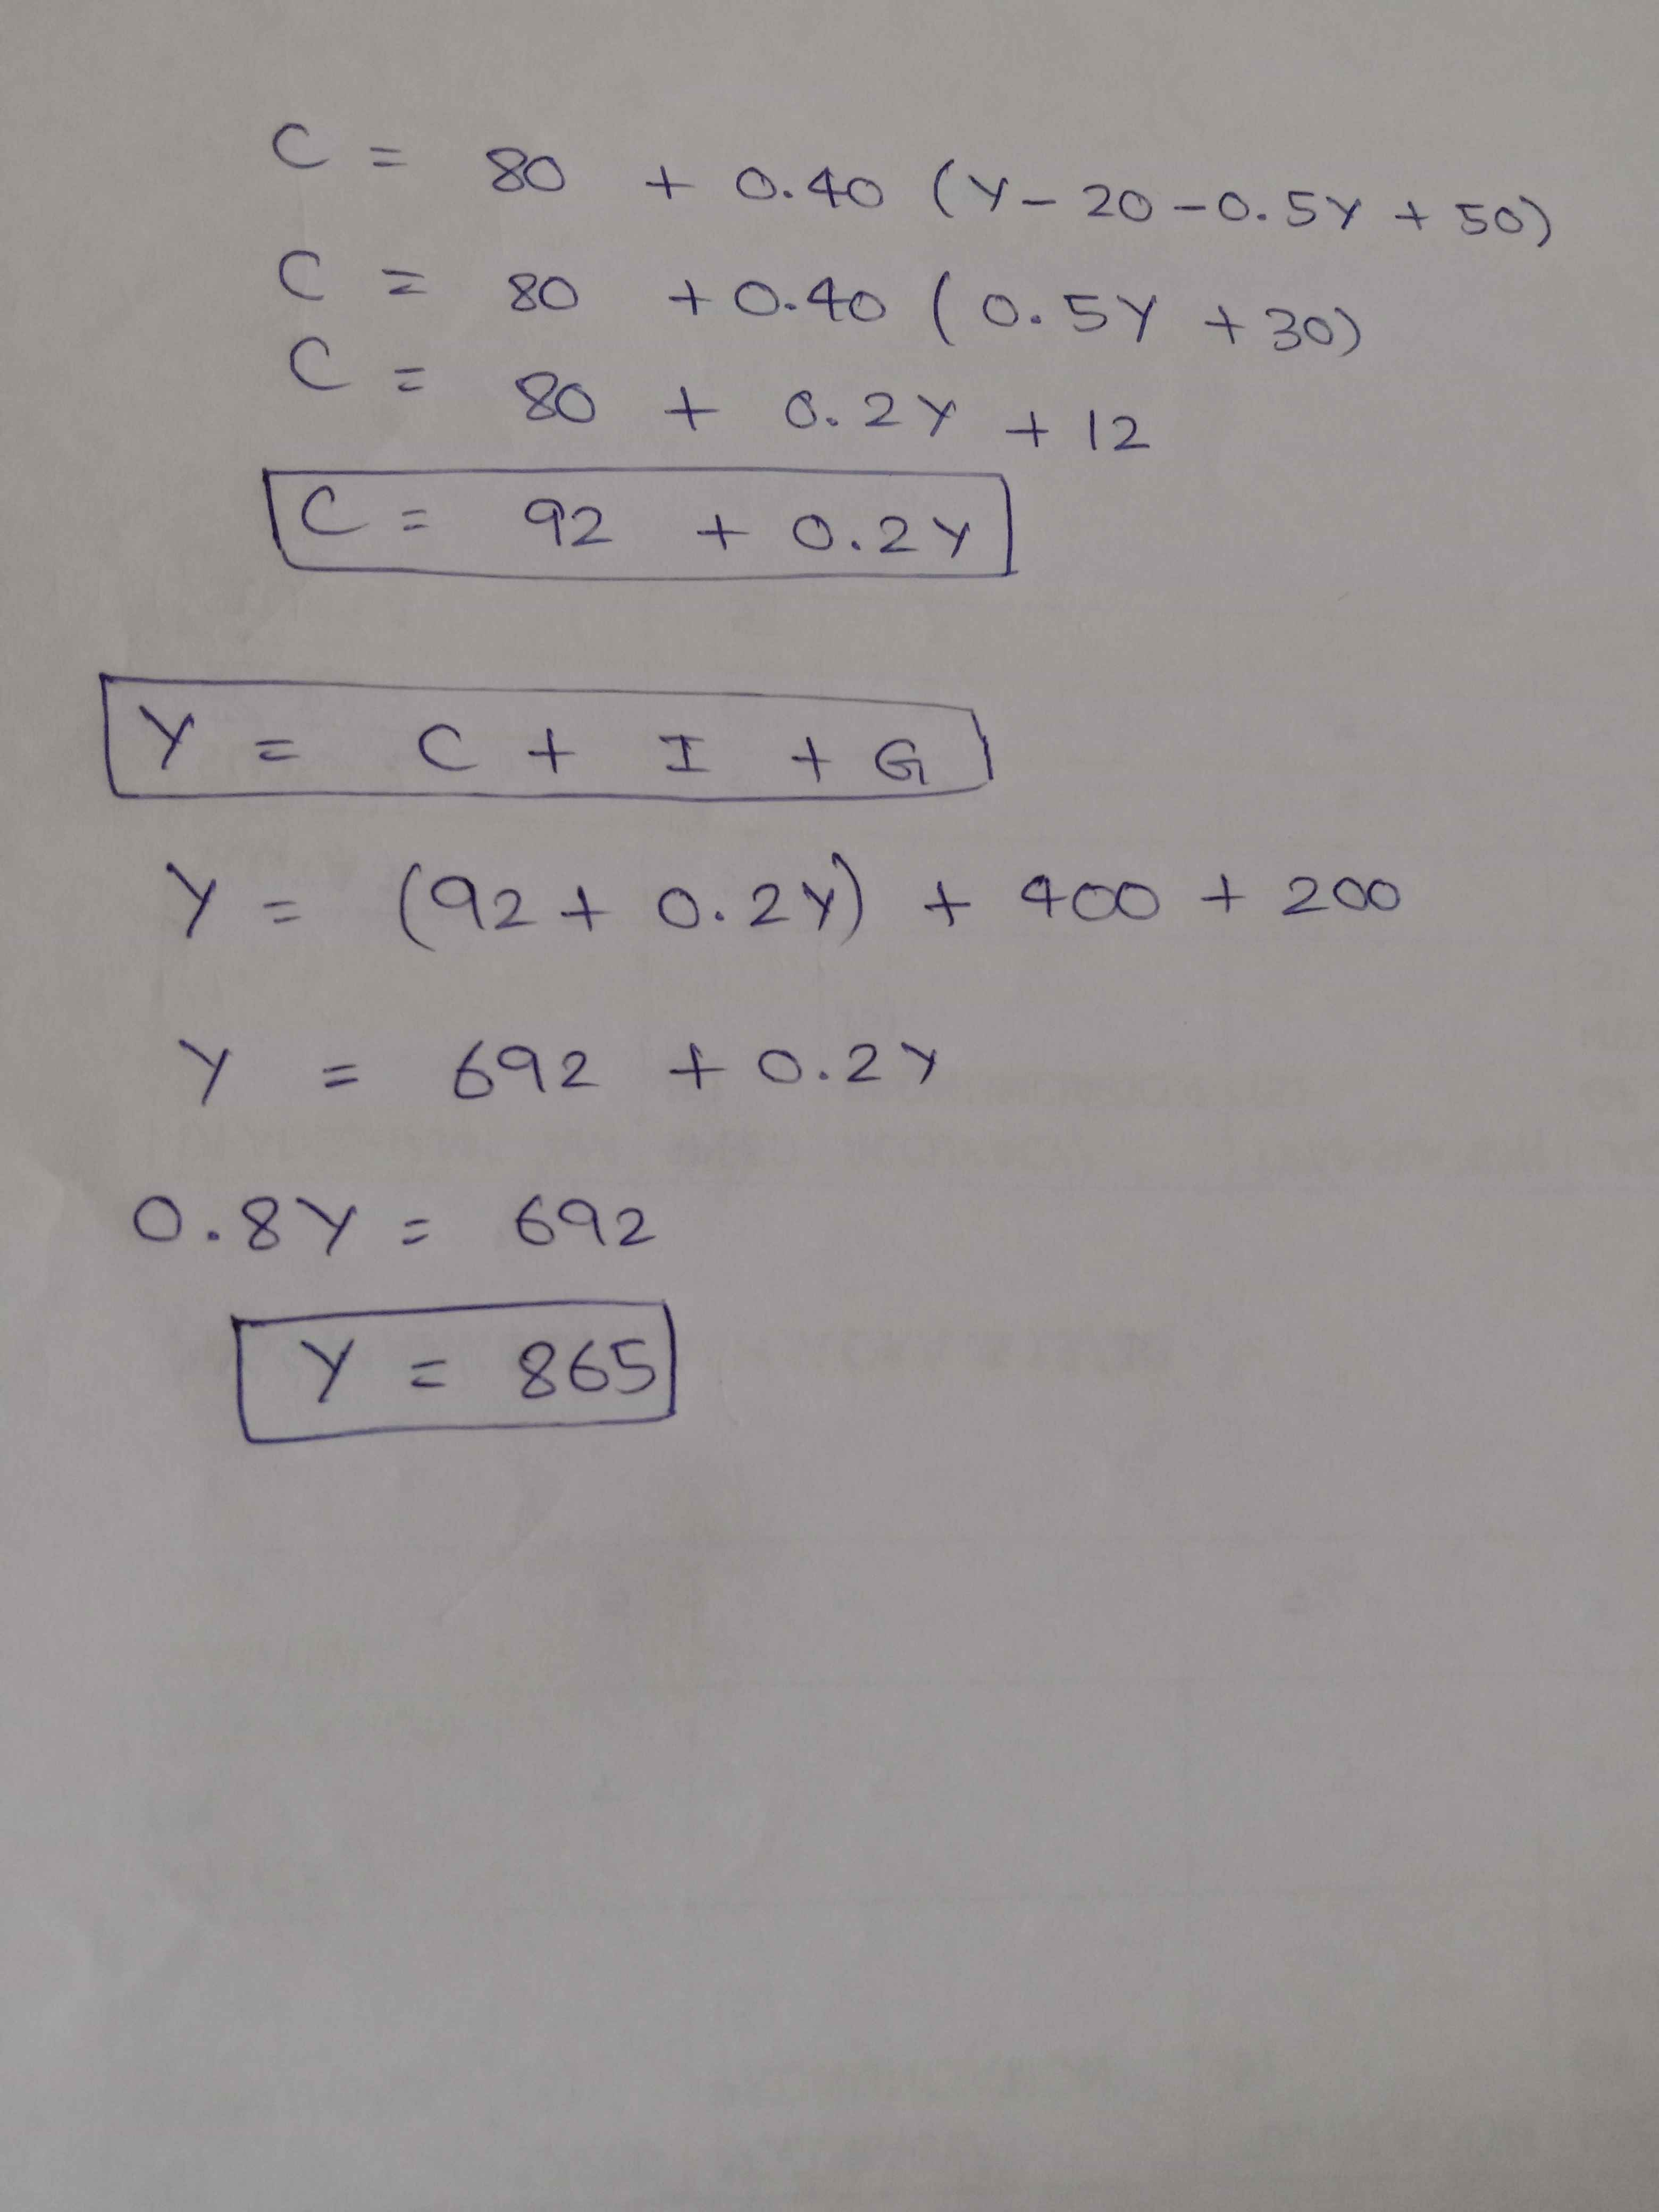 C = 80 + 0.40 (Y - 20 - 0.5Y + 50)
C = 80 + 0.40 (0.5Y + 30)
C = 80 + 0.2Y + 12
C = 92 + 0.2Y
Y = C + I + G
Y = (92 + 0.2Y) + 400 + 200
Y = 692 + 0.2Y
0.8Y = 692
Y = 865